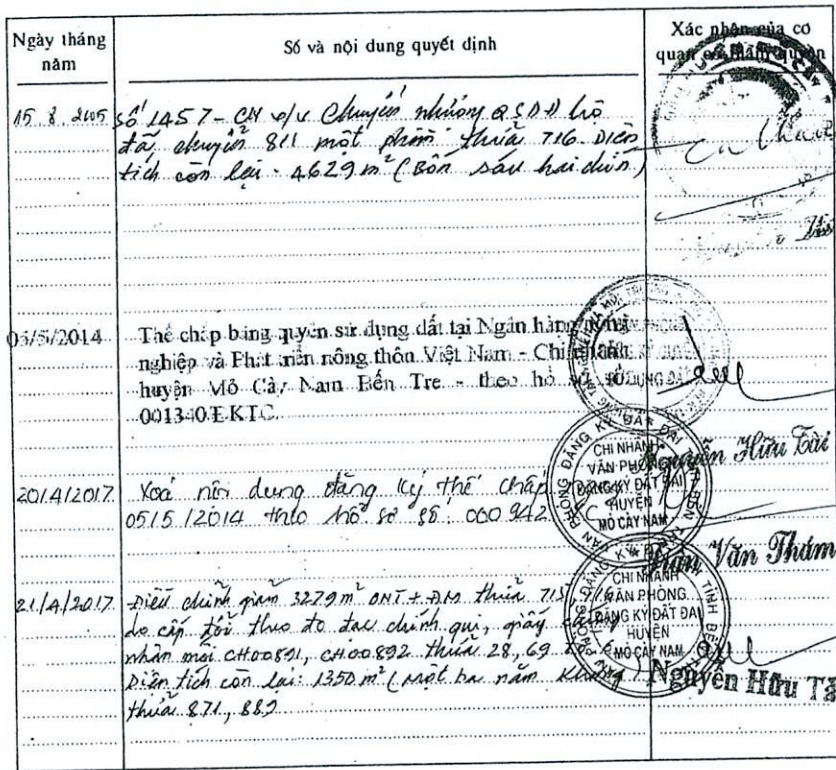 Ngày tháng năm
Số và nội dung quyết định
Xác nhận của cơ quan có thẩm quyền
15.8.2005
Số 1457-CN v/v Chuyển nhượng QSDĐ hộ
đã chuyển 811 một phần thửa 716. Diện
tích còn lại - 4629 m² (Bốn sáu hai chín)
05/5/2014
Thế chấp bằng quyền sử dụng đất tại Ngân hàng nông
nghiệp và Phát triển nông thôn Việt Nam - Chi nhánh
huyện Mỏ Cày Nam Bến Tre - theo hồ sơ số
001340
Nguyễn Hữu Tài
20/4/2017
Xoá nội dung đăng ký thế chấp
05/5/2014 theo hồ sơ số: 000942
CHI NHÁNH
VĂN PHÒNG
ĐĂNG KÝ ĐẤT ĐAI
HUYỆN
MỎ CÀY NAM
Văn Thám
21/4/2017
Điều chỉnh giảm 3279 m² ONT + thửa 715, 716
do cấp đổi theo đo đạc chính qui, giấy chứng
nhận mới CH00891, CH00892 thửa 28, 69
Diện tích còn lại: 1350 m² (Một ba năm không)
thửa 871, 882
CHI NHÁNH
VĂN PHÒNG
ĐĂNG KÝ ĐẤT ĐAI
HUYỆN
MỎ CÀY NAM
Nguyễn Hữu Tà